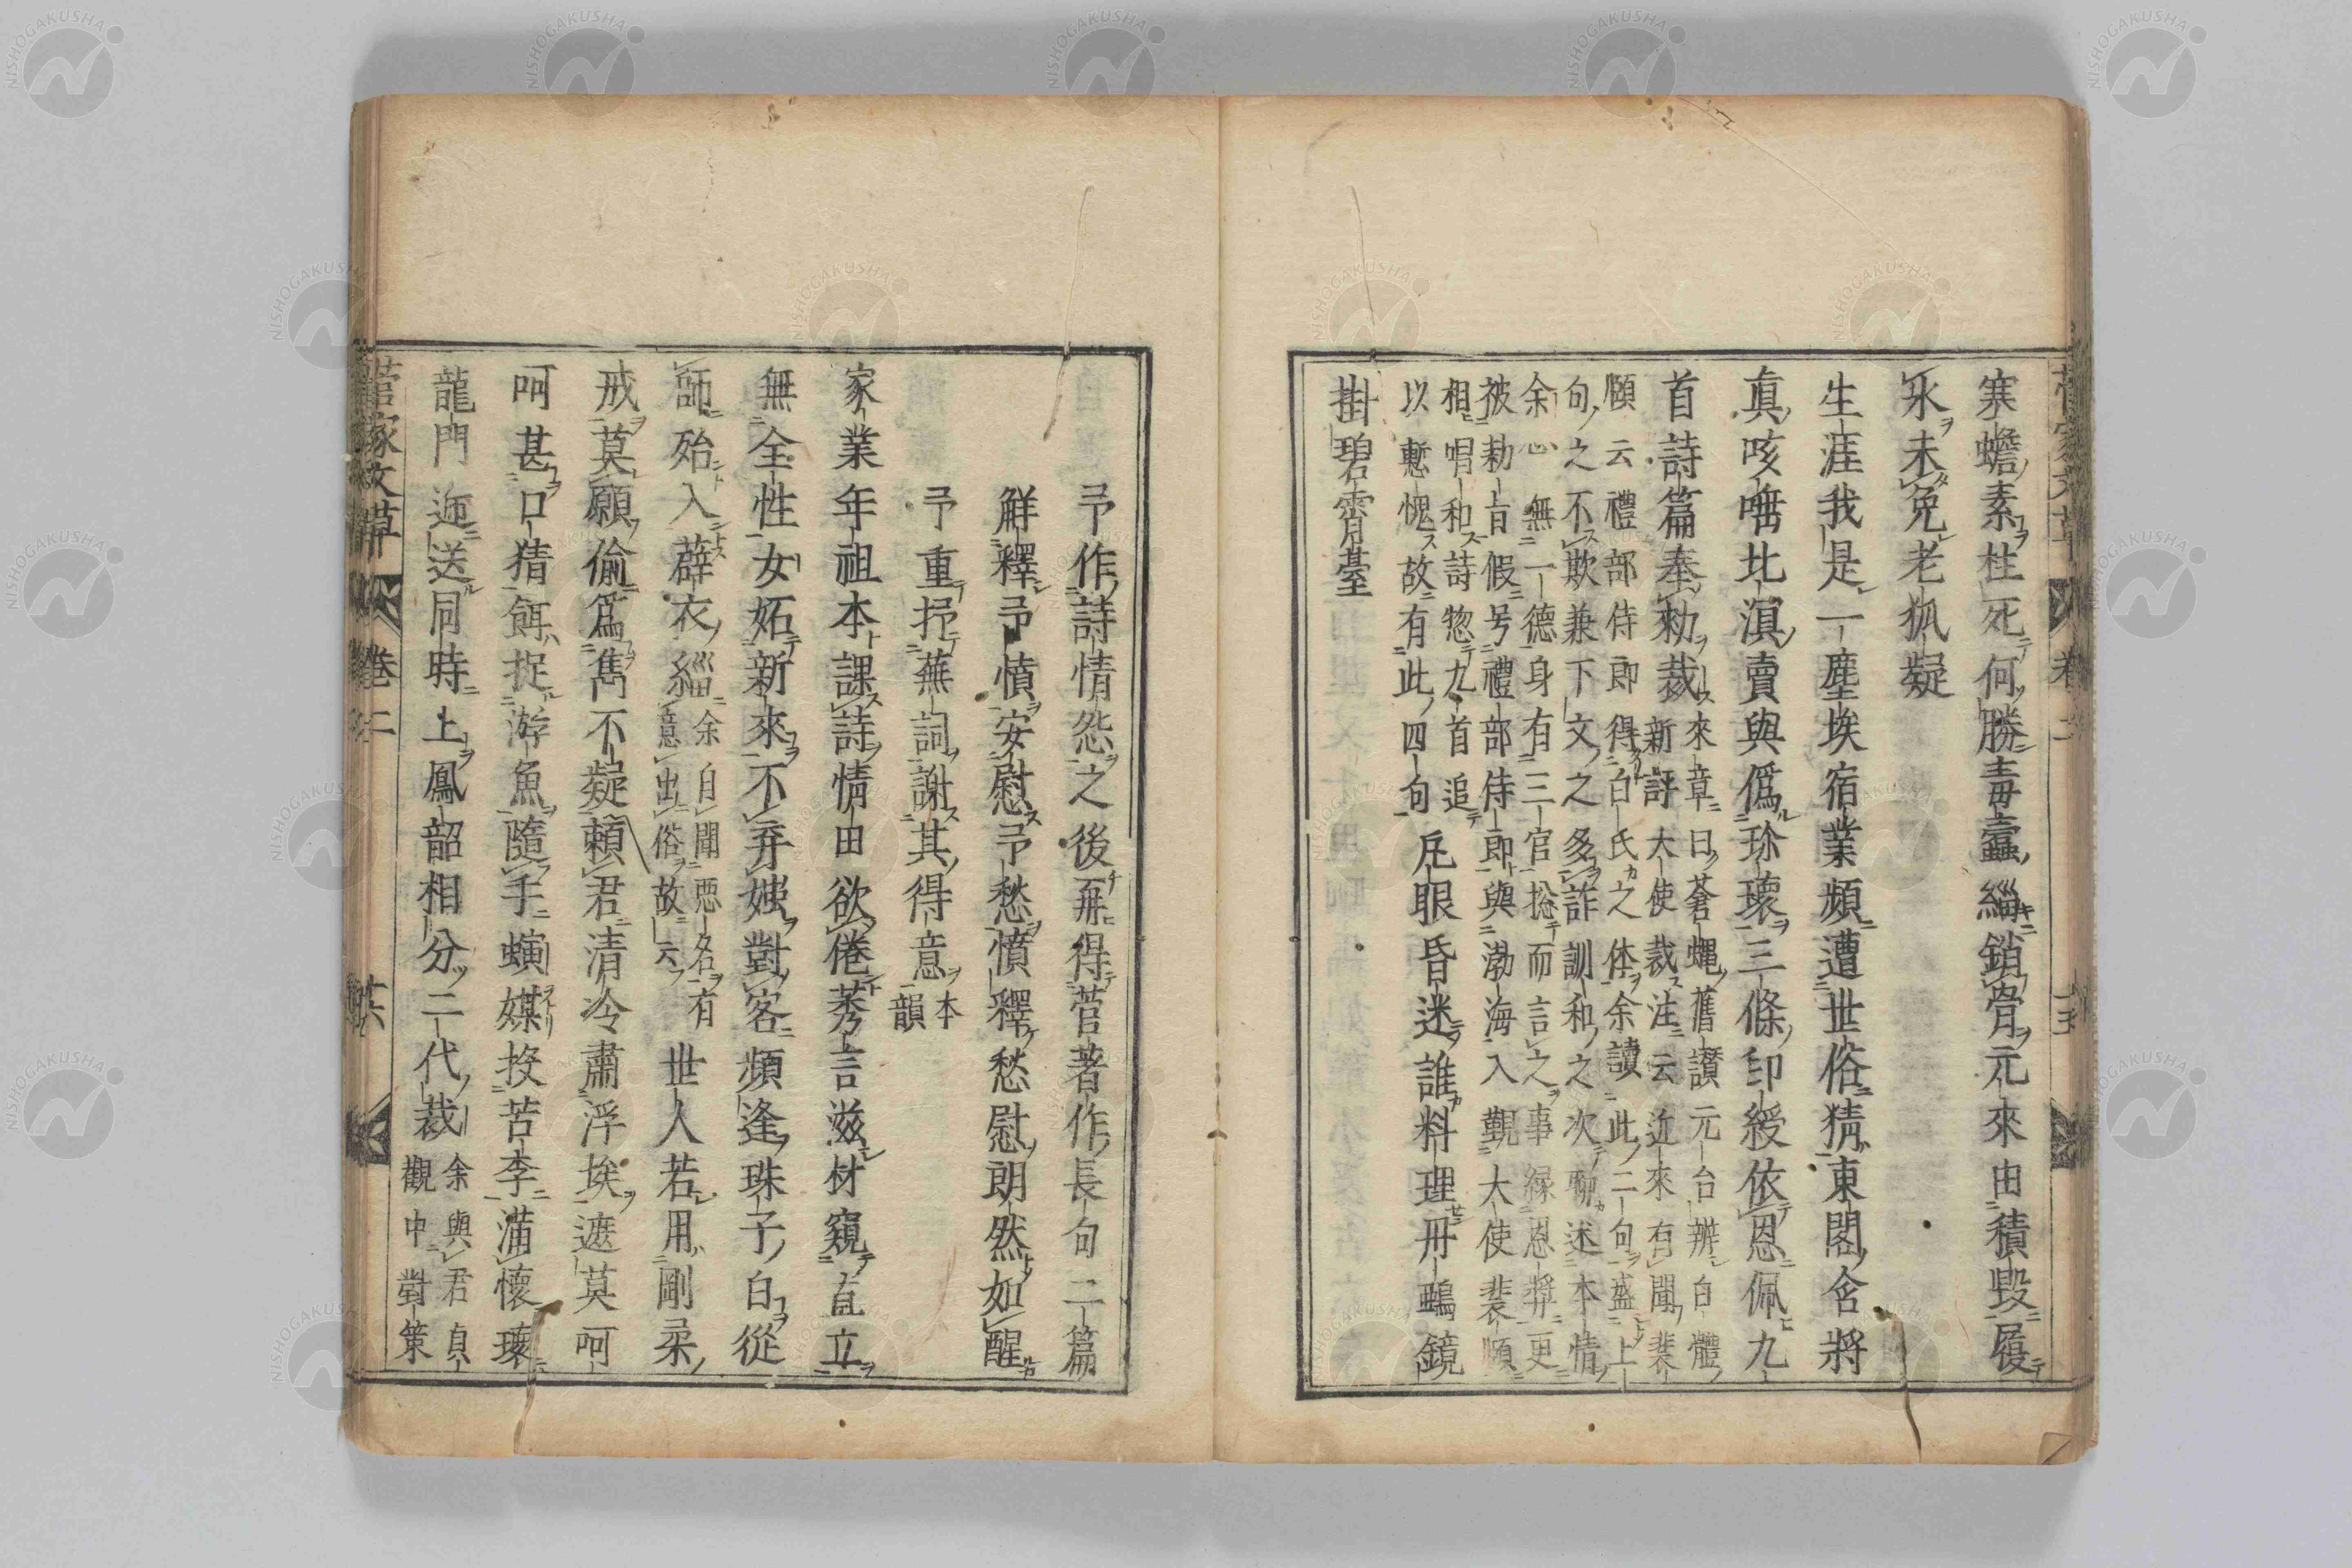 寒蟾素柱死何勝毒蠹緇鎖骨元來由積毀履
氷未免老狐疑
生涯我是一塵埃宿業頻遭世俗猜東閣含將
眞咳唾比滇賣與僞珎瓌三條印綬依恩佩九
首詩篇奉勑裁來章曰蒼蝿舊讚元台辨白體
新評大使裁注云近來有聞裴
願云禮部侍郎得白氏之体余讀此二句盛上
句之不欺兼下文之多詐訓和之次聊述本情
余心無一德身有三官捴而言之事縁恩奬更
被勑旨假号禮部侍郎與渤海入覲大使裴頲
相唱和詩惣九首追
以慙愧故有此四句
凡眼昏迷誰料理丹鷗鏡
掛碧霄臺
予作詩情怨之後再得菅著作長句二篇
解釋予憤安慰予愁憤釋愁慰朗然如醒
予重抒蕪詞謝其得意本
韻
家業年祖本課詩情田欲倦莠言滋材窺直立
無全性女妬新來不弃媸對客頻逢珠子白從
師殆入薜衣緇余自聞惡名有
意出俗故云
世人若用剛柔
戒莫願偷爲雋不疑頼君清冷肅浮埃遮莫呵
呵甚口猜餌捉游魚隨手螾媒投苦李滿懷瓌
龍門迎送同時上鳳韶相分二代裁余與君貞
觀中對策
菅家文草
卷二
共
NISHOGAKUSHA